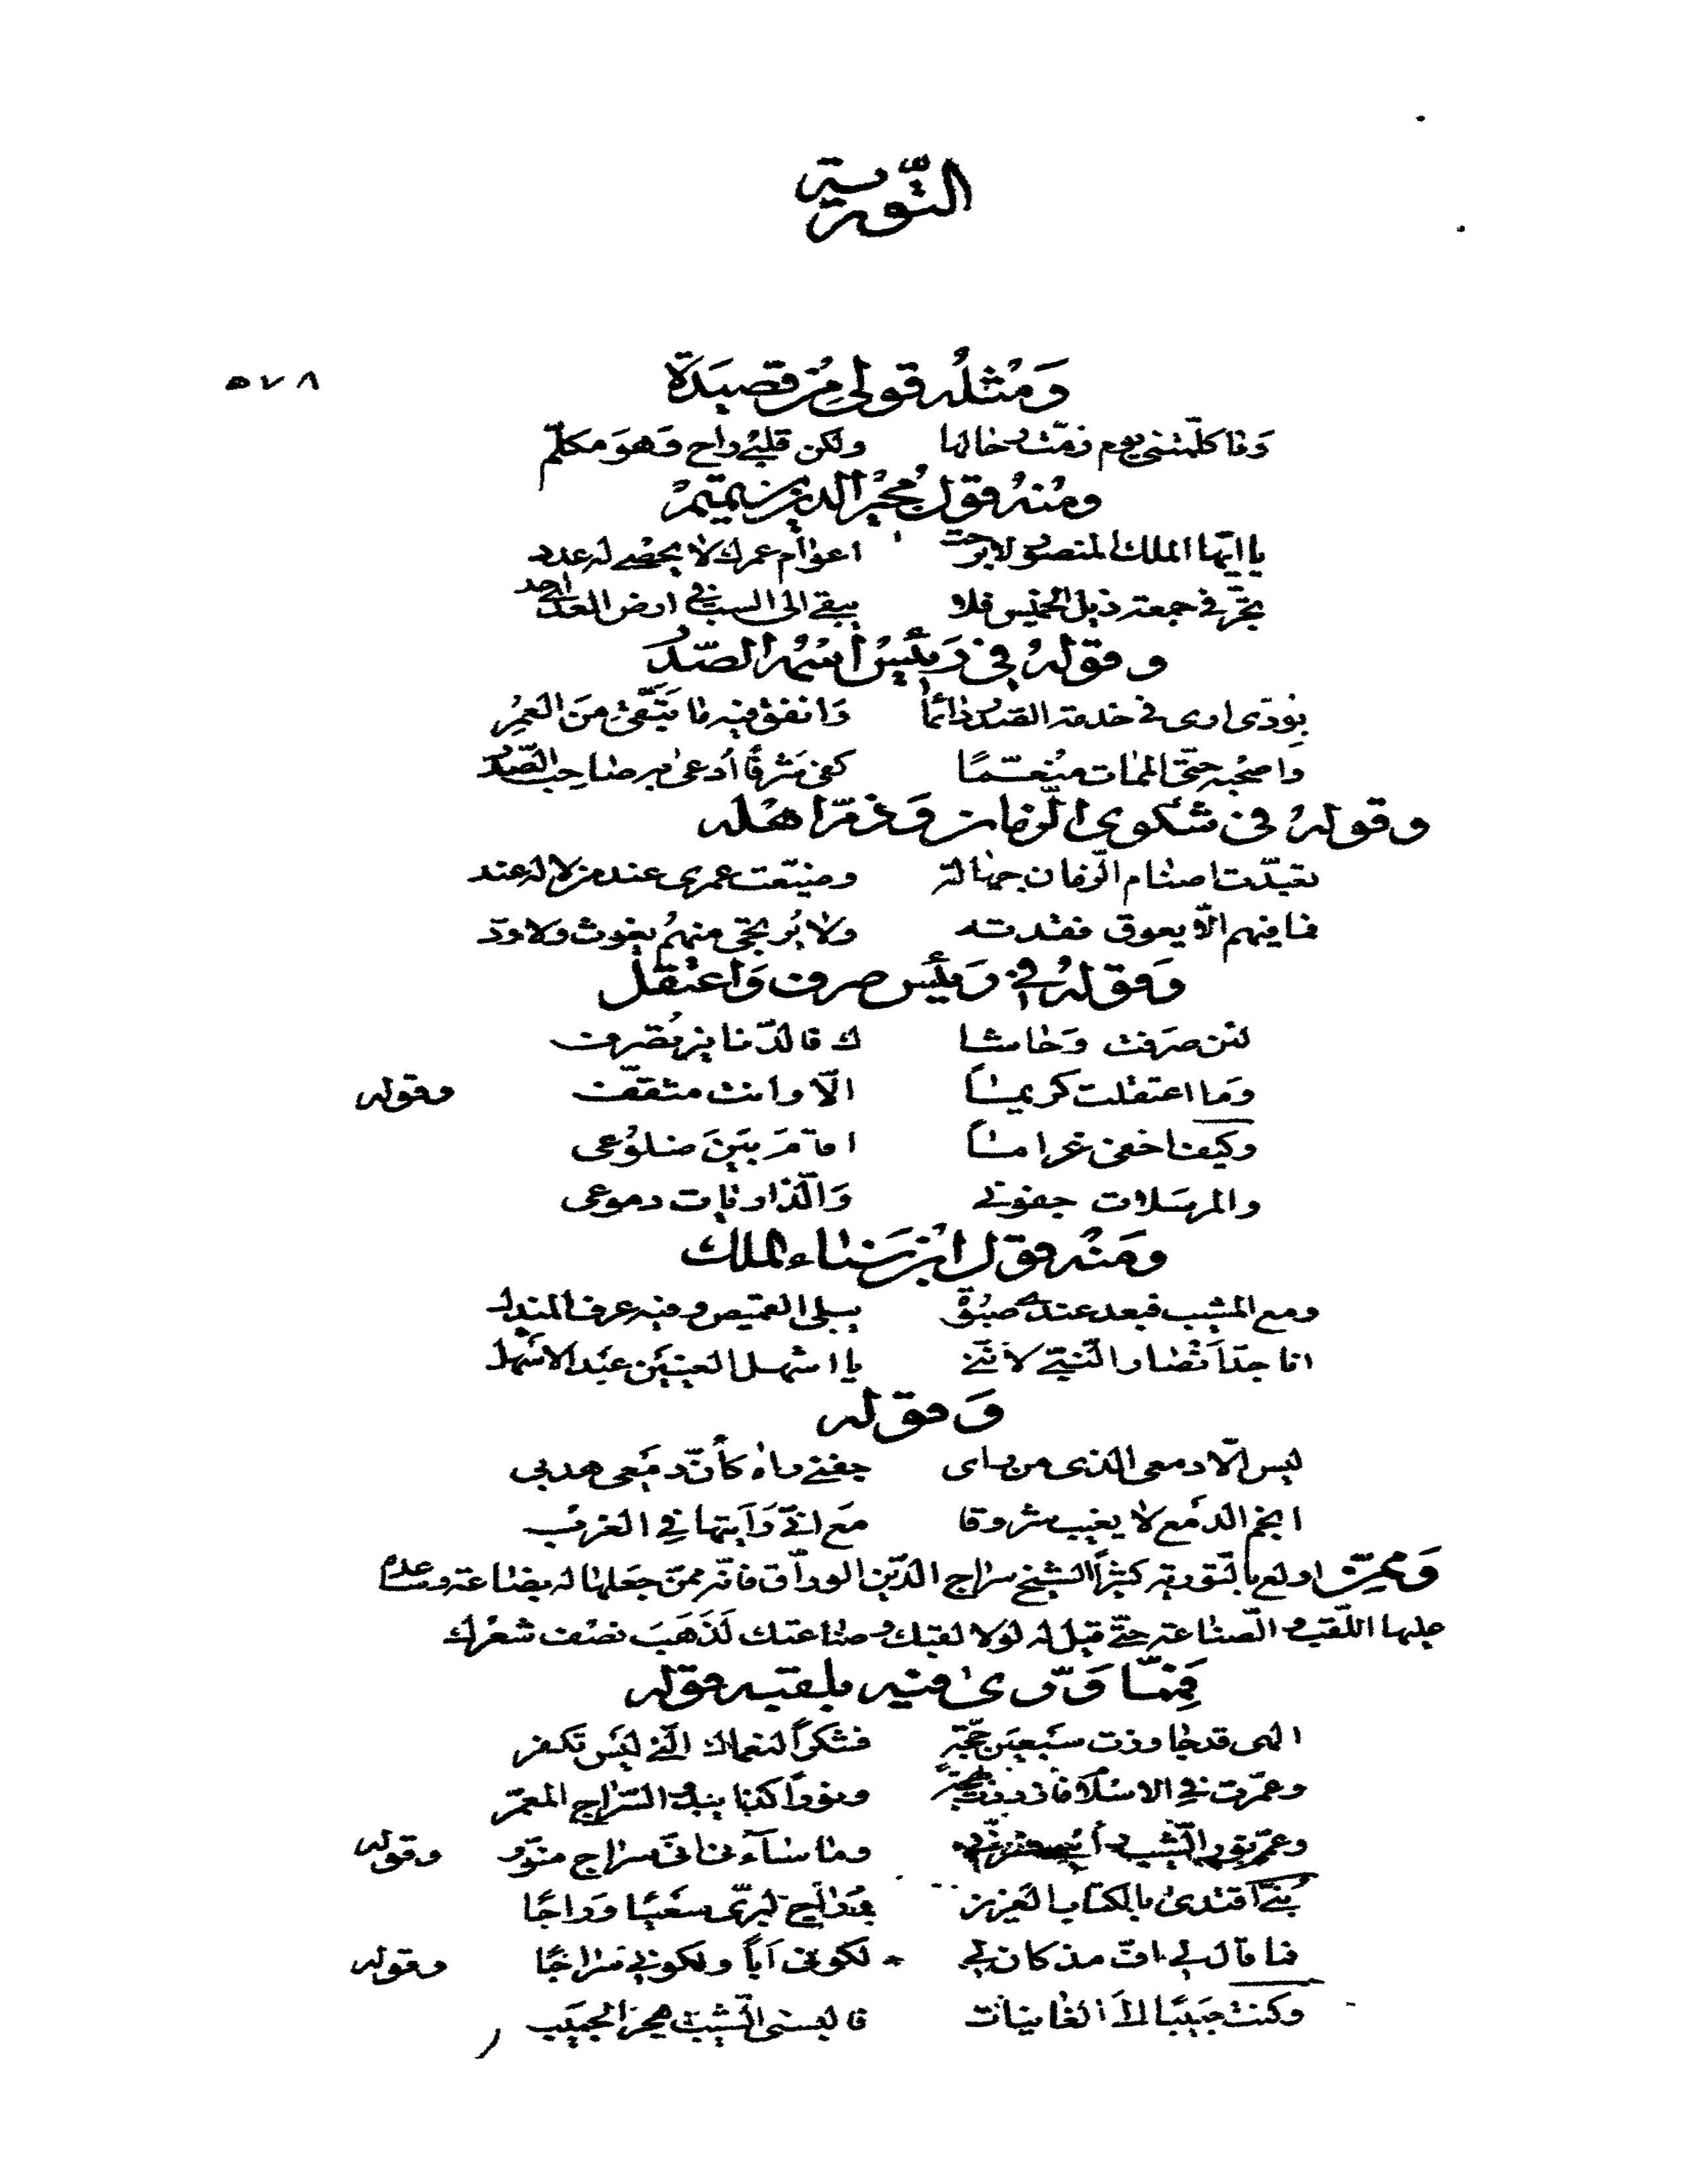 التّورية
٥٧٨
وَمثلُه قولي مِن قصيدَة
وَما كلّمتني يوم زمّت رحالها ولكن قلبي راح وَهوَ مكلّم
ومنهُ قول مُجير الدين بن تميم
يا ايّها الملك المنصور لا برحت اعوام عمرك لا يحصى له عدد
يجرّ في جمعة ذيل الخميس فلا يبقى الى السبت في ارض العدا احد
وقولهُ في رَئيس اسمُه الصّدرُ
بودّى ارى في خدمة الصّدر دائمًا وَانفق فيه ما تبَقّى مِنَ العمُرِ
واصحبه حتّى الممات منعّمًا كفى شرفًا أدعى به صاحب الصّدر
وقولهُ في شكوى الزّمان وَذمّ اهله
تعبدّت اصنام الزّمان جهالة وضيّعت عمرى عند من لا له عند
فما فيهم الّا يعوق فقدته ولا يُرتجى منهم يغوث ولا ودّ
وَقولهُ في رَئيس صرف وَاعتقل
لئن صرفت وَحاشا ك فالدّنانير تُصرف
وَما اعتقلت كريمًا الّا وانت مثقّف وقوله
وكيف اخفى غرامًا اقامَ بَينَ ضلوُعى
والمرسَلات جفونى وَالذّاريات دموعى
ومَنهُ قول ابن سَناء الملك
ومع المشيب فبعد عندى صبُوة يبلى القميص وفيه عرف المندل
انا جدّ انصار التي لأنّني يا اشهل العينين عبَد الاشهل
وَقوله
ليس الّا دمعى الذى من راى جفنى رآه كأنّ دمَعى هدبى
انجم الدمَع لا يغيب شروقا مَع انّي رَأيتها في الغرب
وَممّن اولع بالتّورية كثيرًا الشيخ سراج الدّين الورّاق فانّه ممّن جعَلها له بضاعة وساعده
عليها اللّقب والصّناعة حتّى قيل له لولا لقبك وصناعتك لَذَهَبَ نصف شعرك
فمِمّا وَرّى فيه بلقبه قوله
الهى قد جاوزت سَبعينَ حجّة فشكرًا لنعماك الّتي ليَس تكفر
وعمّرت في الاسلام فازددت بهجة ونورًا كذا يبدو السّراج المعمّر
وعمّ نور الشّيب رأسى فسرّنى وما ساءنى انّ السراج منوّر وقوله
بُنَيّ اقتدى بالكتاب العَزيز فزاد لبرّى سعيًا وَراجًا
فما قال لى افّ مذ كان لى لكونى اَبًا ولكونى سراجًا وقوله
وكنت حَبيبًا الى الغانيات فالبسنى الشّيب هجر الحبيَب